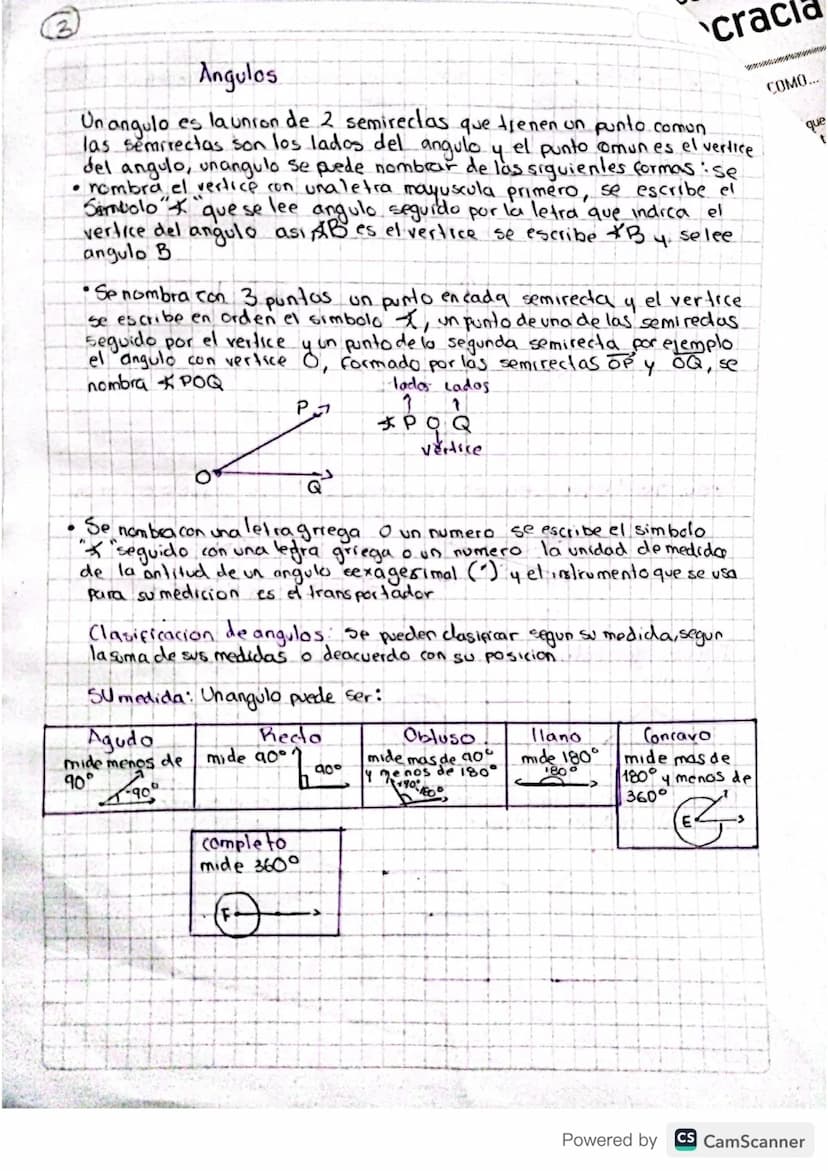 3
cracia
COMO...
que
Angulos
Un angulo es la union de 2 semirectas que tienen un punto comun
las semirectas son los lados del angulo y el punto comun es el vertice
del angulo, un angulo se puede nombrar de las siguientes formas: se
• nombra el vertice con una letra mayuscula primero, se escribe el
Simbolo "∢" que se lee angulo seguido por la letra que indica el
vertice del angulo asi ∢B es el vertice se escribe ∢B y se lee
angulo B
• Se nombra con 3 puntos un punto en cada semirecta y el vertice
se escribe en orden el simbolo ∢, un punto de una de las semirectas
seguido por el vertice y un punto de la segunda semirecta por ejemplo
el angulo con vertice O, formado por las semirectas OP y OQ, se
nombra ∢POQ
lados lados
∢ P O Q
vertice
P
O
Q
• Se nombra con una letra griega o un numero se escribe el simbolo
"∢" seguido con una letra griega o un numero la unidad de medida
de la antitud de un angulo sexagesimal (°) y el instrumento que se usa
para su medicion es el transportador
Clasificacion de angulos: se pueden clasificar segun su medida, segun
la suma de sus medidas o deacuerdo con su posicion
SU medida: Un angulo puede ser:
Agudo
mide menos de
90°
-90°
Recto
mide 90°
90°
Obtuso
mide mas de 90°
y menos de 180°
+90°
180°
llano
mide 180°
180°
Concavo
mide mas de
180° y menos de
360°
E
completo
mide 360°
F
Powered by CS CamScanner